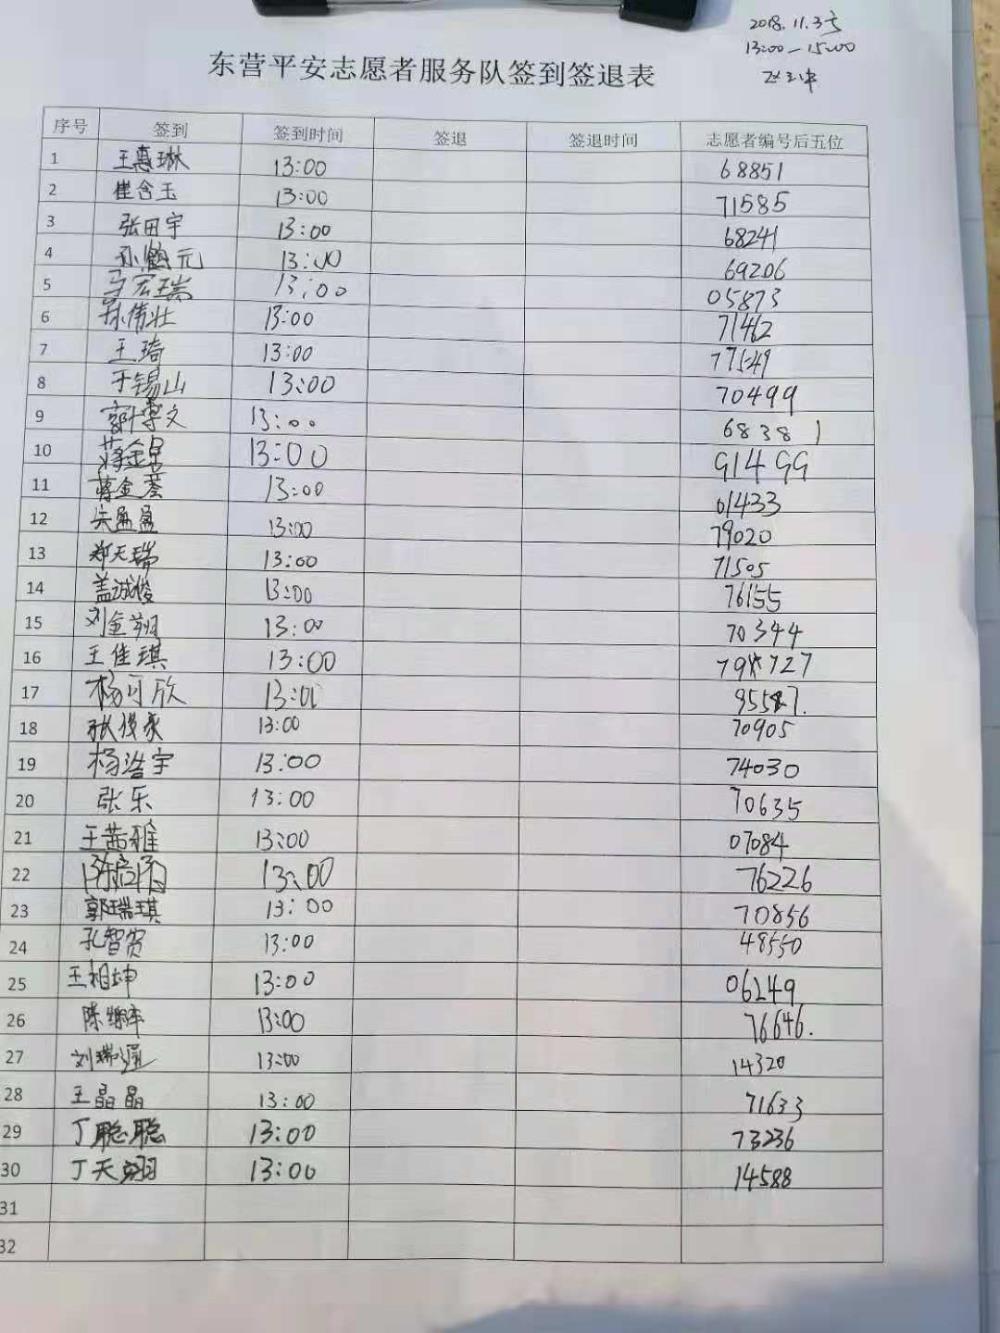 2018.11.3号
13:00—15:00
东营平安志愿者服务队签到签退表
序号 签到 签到时间 签退 签退时间 志愿者编号后五位
1 王惠琳 13:00 68851
2 崔含玉 13:00 71585
3 张田宇 13:00 68241
4 孙鹤元 13:00 69206
5 马宏瑞 13:00 05873
6 孙伟壮 13:00 71462
7 王琦 13:00 77549
8 于锡山 13:00 70499
9 郭博文 13:00 68381
10 蒋金 13:00 91499
11 蒋金 13:00 01433
12 盈盈 13:00 79020
13 郑天瑞 13:00 71505
14 盖诚俊 13:00 76155
15 刘金翔 13:00 70344
16 王佳琪 13:00 727
17 杨可欣 13:00
18 张俊豪 13:00 70905
19 杨浩宇 13:00 74030
20 张乐 13:00 70635
21 王茜雅 13:00 07084
22 13:00 76226
23 郭瑞琪 13:00 70856
24 孔智贺 13:00 48550
25 王相坤 13:00 06249
26 陈 13:00 76646.
27 刘瑞 13:00 14320
28 王晶晶 13:00 71633
29 丁聪聪 13:00 73236
30 丁天翊 13:00 14588
31
32